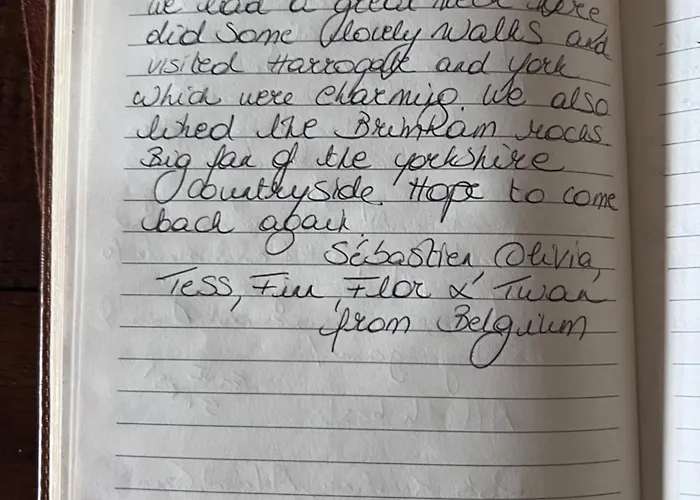 we had a great week here
did some lovely walks and
visited Harrogate and York
which were charming. We also
liked the Brimham rocks.
Big fan of the yorkshire
countryside. Hope to come
back again.
Sébastien, Olivia,
Tess, Finn, Flor & Twan
from Belguium